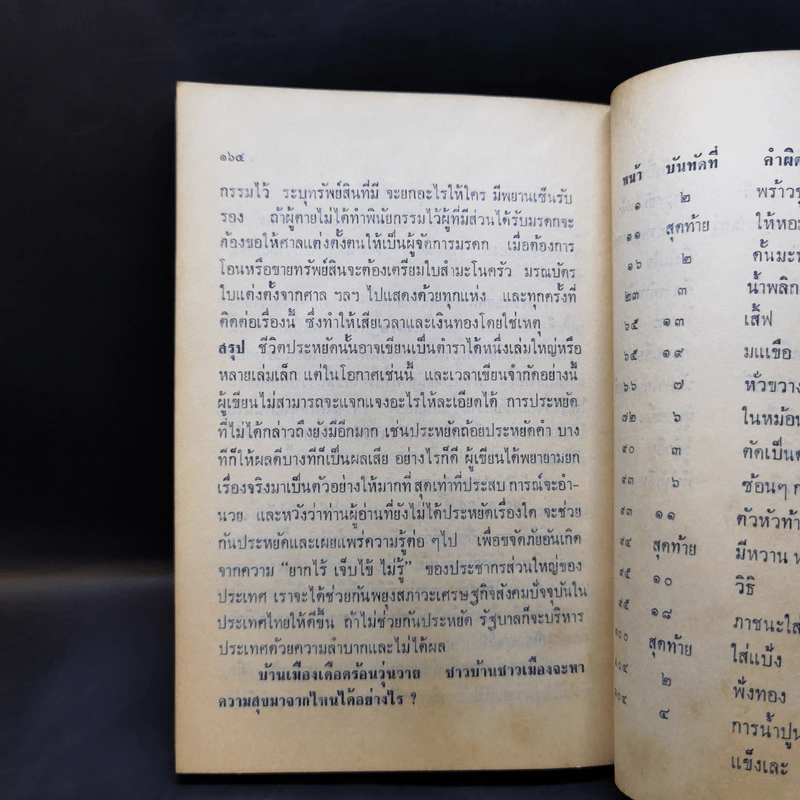 ๑๖๔
กรรมไว้ ระบุทรัพย์สินที่มี จะยกอะไรให้ใคร มีพยานเซ็นรับ
รอง ถ้าผู้ตายไม่ได้ทำพินัยกรรมไว้ผู้ที่มีส่วนได้รับมรดกจะ
ต้องขอให้ศาลแต่งตั้งตนให้เป็นผู้จัดการมรดก เมื่อต้องการ
โอนหรือขายทรัพย์สินจะต้องเตรียมใบสำมะโนครัว มรณบัตร
ใบแต่งตั้งจากศาล ฯลฯ ไปแสดงด้วยทุกแห่ง และทุกครั้งที่
ติดต่อเรื่องนี้ ซึ่งทำให้เสียเวลาและเงินทองโดยใช่เหตุ
สรุป ชีวิตประหยัดนั้นอาจเขียนเป็นตำราได้หนึ่งเล่มใหญ่หรือ
หลายเล่มเล็ก แต่ในโอกาสเช่นนี้ และเวลาเขียนจำกัดอย่างนี้
ผู้เขียนไม่สามารถจะแจกแจงอะไรให้ละเอียดได้ การประหยัด
ที่ไม่ได้กล่าวถึงยังมีอีกมาก เช่นประหยัดถ้อยประหยัดคำ บาง
ทีก็ให้ผลดีบางทีก็เป็นผลเสีย อย่างไรก็ดี ผู้เขียนได้พยายามยก
เรื่องจริงมาเป็นตัวอย่างให้มากที่ สุดเท่าที่ประสบ การณ์จะอำ-
นวย และหวังว่าท่านผู้อ่านที่ยังไม่ได้ประหยัดเรื่องใด จะช่วย
กันประหยัดและเผยแพร่ความรู้ต่อ ๆไป เพื่อขจัดภัยอันเกิด
จากความ “ยากไร้ เจ็บไข้ ไม่รู้” ของประชากรส่วนใหญ่ของ
ประเทศ เราจะได้ช่วยกันพยุงสภาวะเศรษฐกิจสังคมปัจจุบันใน
ประเทศไทยให้ดีขึ้น ถ้าไม่ช่วยกันประหยัด รัฐบาลก็จะบริหาร
ประเทศด้วยความลำบากและไม่ได้ผล
บ้านเมืองเดือดร้อนวุ่นวาย ชาวบ้านชาวเมืองจะหา
ความสุขมาจากไหนได้อย่างไร ?
หน้า บันทัดที่ คำผิด
๑ ๒ พร้าว
๑๑ สุดท้าย ให้หอม
๑๖ ๒
๒๓ ๓ น้ำพลิก
๖๕ ๑๓ เส้ฟ
๖๕ ๑๙ มแเขือ
๖๖ ๗ หั่วขวาง
๗๒ ๖ ในหม้อน
๙๐ ๓ ตัดเป็น
๙๓ ๖ ซ้อนๆ ก
๙๓ ๑๑ ตัวหัวท้า
๙๔ สุดท้าย มีหวาน ห
๙๕ ๑๐ วิธิ
๙๕ ๑๘ ภาชนะใส
๑๐๐ สุดท้าย ใส่แป้ง
๑๐๔ ๒ พั่งทอง
๑๐๔ ๔ การน้ำปูน
แข็งเละ